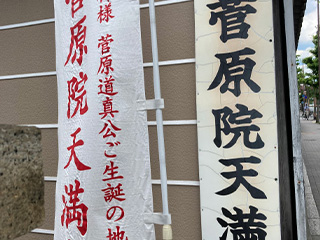 菅原院天満
様 菅原道真公ご生誕の地
菅原院天満